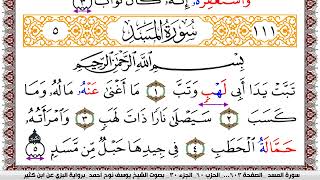 وَاسْتَغْفِرْهُ إِنَّهُ كَانَ تَوَّابًا ٣
١١١ سُورَةُ المَسَدِ ٥
بِسْمِ اللَّهِ الرَّحْمَٰنِ الرَّحِيمِ
تَبَّتْ يَدَا أَبِي لَهْبٍ وَتَبَّ ١ مَا أَغْنَىٰ عَنْهُ مَالُهُ وَمَا
كَسَبَ ٢ سَيَصْلَىٰ نَارًا ذَاتَ لَهَبٍ ٣ وَامْرَأَتُهُ
حَمَّالَةُ الْحَطَبِ ٤ فِي جِيدِهَا حَبْلٌ مِّن مَّسَدٍ ٥
سورة المسد الصفحة ٦٠٣ ... الحزب ٦٠ الجزء ٣٠ . بصوت الشيخ يوسف نوح احمد برواية البزي عن ابن كثير